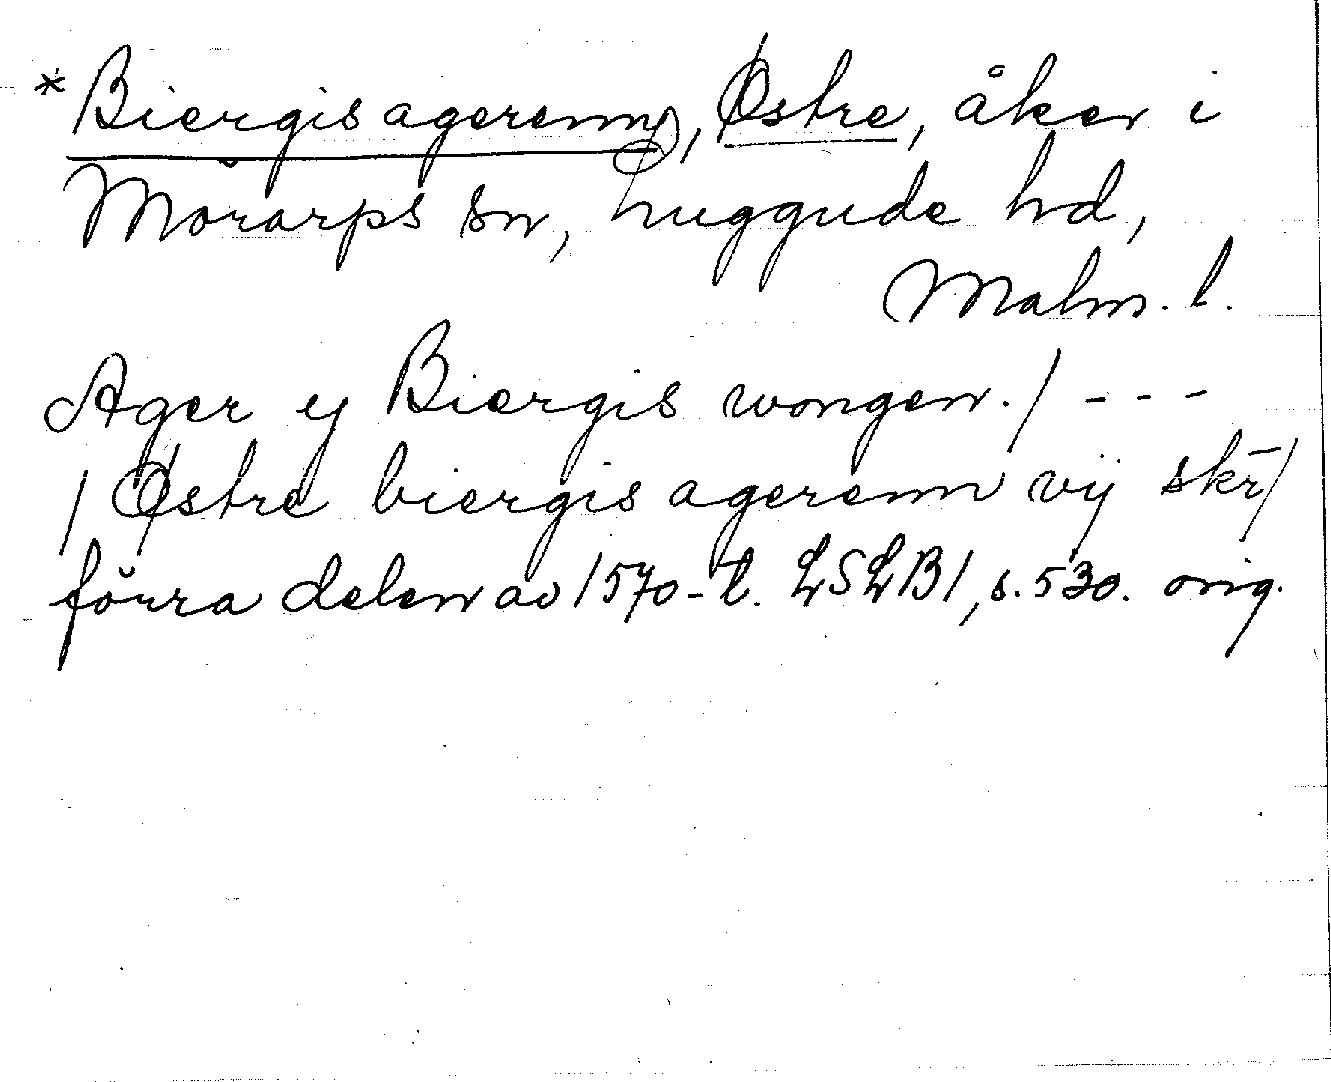 *Biergis agerenn, Østre, åker i
Mörarps sn, Luggude hd,
Malm. l.
Ager y Biergis wongen. / - - -
/ Østre biergis agerenn vij skr̄ /
förra delen av 1570-t. LSLB1, s. 530. orig.